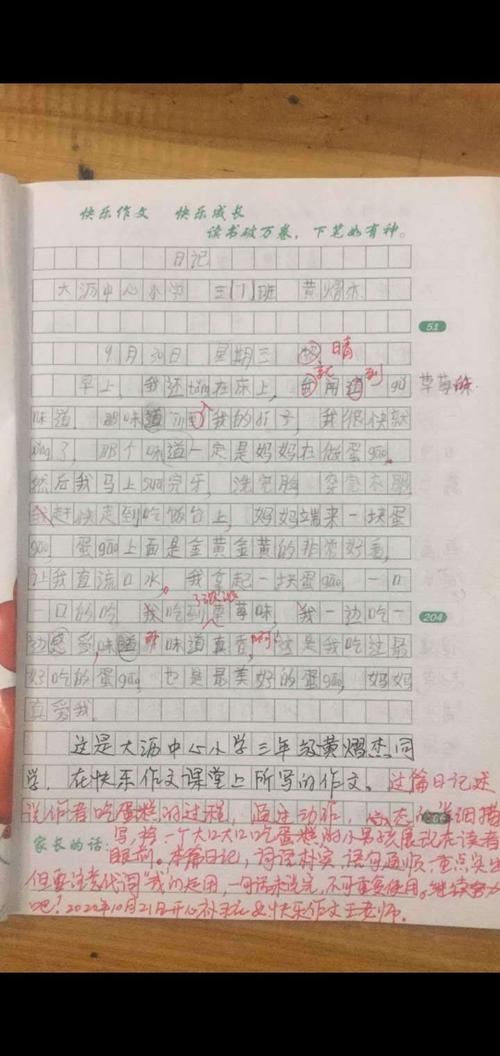 快乐作文 快乐成长
读书破万卷，下笔如有神。
日记
大沥中心小学 三(1)班 黄熠杰
51
9月30日 星期三 晴
早上，我还tǎng在床上，我闻道到 gāo 草莓味
味道，那味道 我的肚子，我很快就
了，那个味道一定是妈妈在做蛋gāo。
然后我马上suā完牙，洗完脸，穿完衣服，
我赶快走到吃饭台上，妈妈端来一块蛋
gāo，蛋gāo上面是金黄金黄的非常好看，
让我直流口水。我拿起一块蛋gāo，一口
一口的吃，我吃到了 草莓味，我一边吃一
204
边感受，味道 那味道真香，啊！这是我吃过最
好吃的蛋gāo，也是最美好的蛋gāo，妈妈
真爱我。
这是大沥中心小学三年级黄熠杰同
学，在快乐作文课堂上所写的作文。这篇日记述
说作者吃蛋糕的过程，通过动作，心态的详细描
家长的话：
写，将一个大口大口吃蛋糕的小男孩展现在读者
眼前。本篇日记，词语朴实，语句通顺，重点突出
但要注意代词“我”的运用，一句话未说完，不可重复使用。继续努力
吧！2020年10月21日开心 快乐作文王老师。